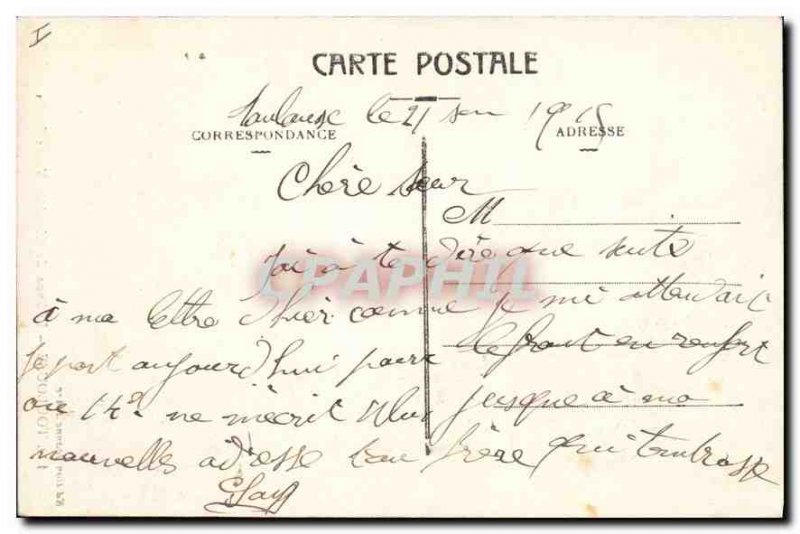 CARTE POSTALE
Toulouse le 21 1915
CORRESPONDANCE ADRESSE
Chère Sœur
M
J'ai à te dire que suite
à ma lettre d'hier comme je m'i attendais
Je part aujourd'hui pour le front en renfort
au 14e ne m'écrit plus jusque à ma
nouvelles adresse ton frère qui t'embrasse
CPAPHIL